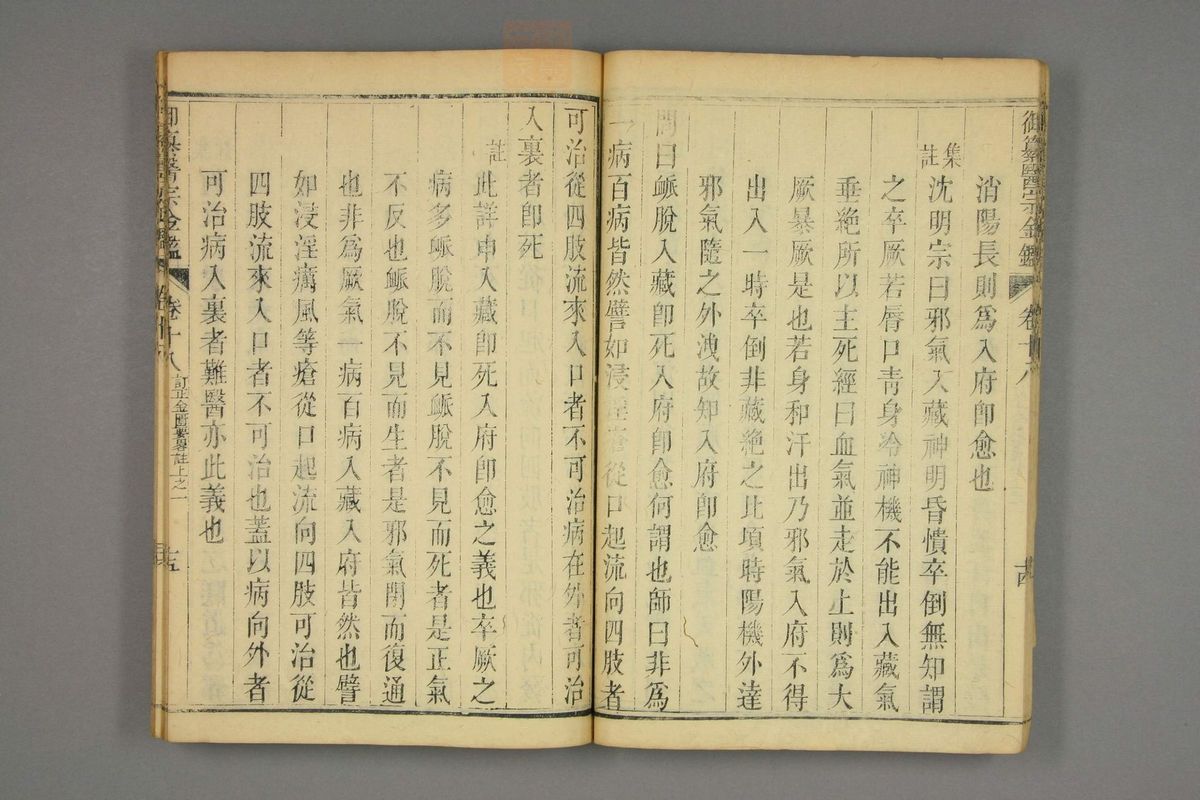 御纂醫宗金鑑 卷十八 十四
消陽長則爲入府卽愈也
集註 沈明宗曰邪氣入藏神明昏憒卒倒無知謂
之卒厥若脣口青身冷神機不能出入藏氣
垂絶所以主死經曰血氣並走於上則爲大
厥暴厥是也若身和汗出乃邪氣入府不得
出入一時卒倒非藏絶之比頃時陽機外達
邪氣隨之外洩故知入府卽愈
問曰衇脫入藏卽死入府卽愈何謂也師曰非爲
一病百病皆然譬如浸淫瘡從口起流向四肢者
可治從四肢流來入口者不可治病在外者可治
入裏者卽死
註 此詳申入藏卽死入府卽愈之義也卒厥之
病多衇脫而不見衇脫不見而死者是正氣
不反也衇脫不見而生者是邪氣閉而復通
也非爲厥氣一病百病入藏入府皆然也譬
如浸淫癘風等瘡從口起流向四肢可治從
四肢流來入口者不可治也蓋以病向外者
可治病入裏者難醫亦此義也
御纂醫宗金鑑 卷十八 訂正金匱要畧註上之一 十五